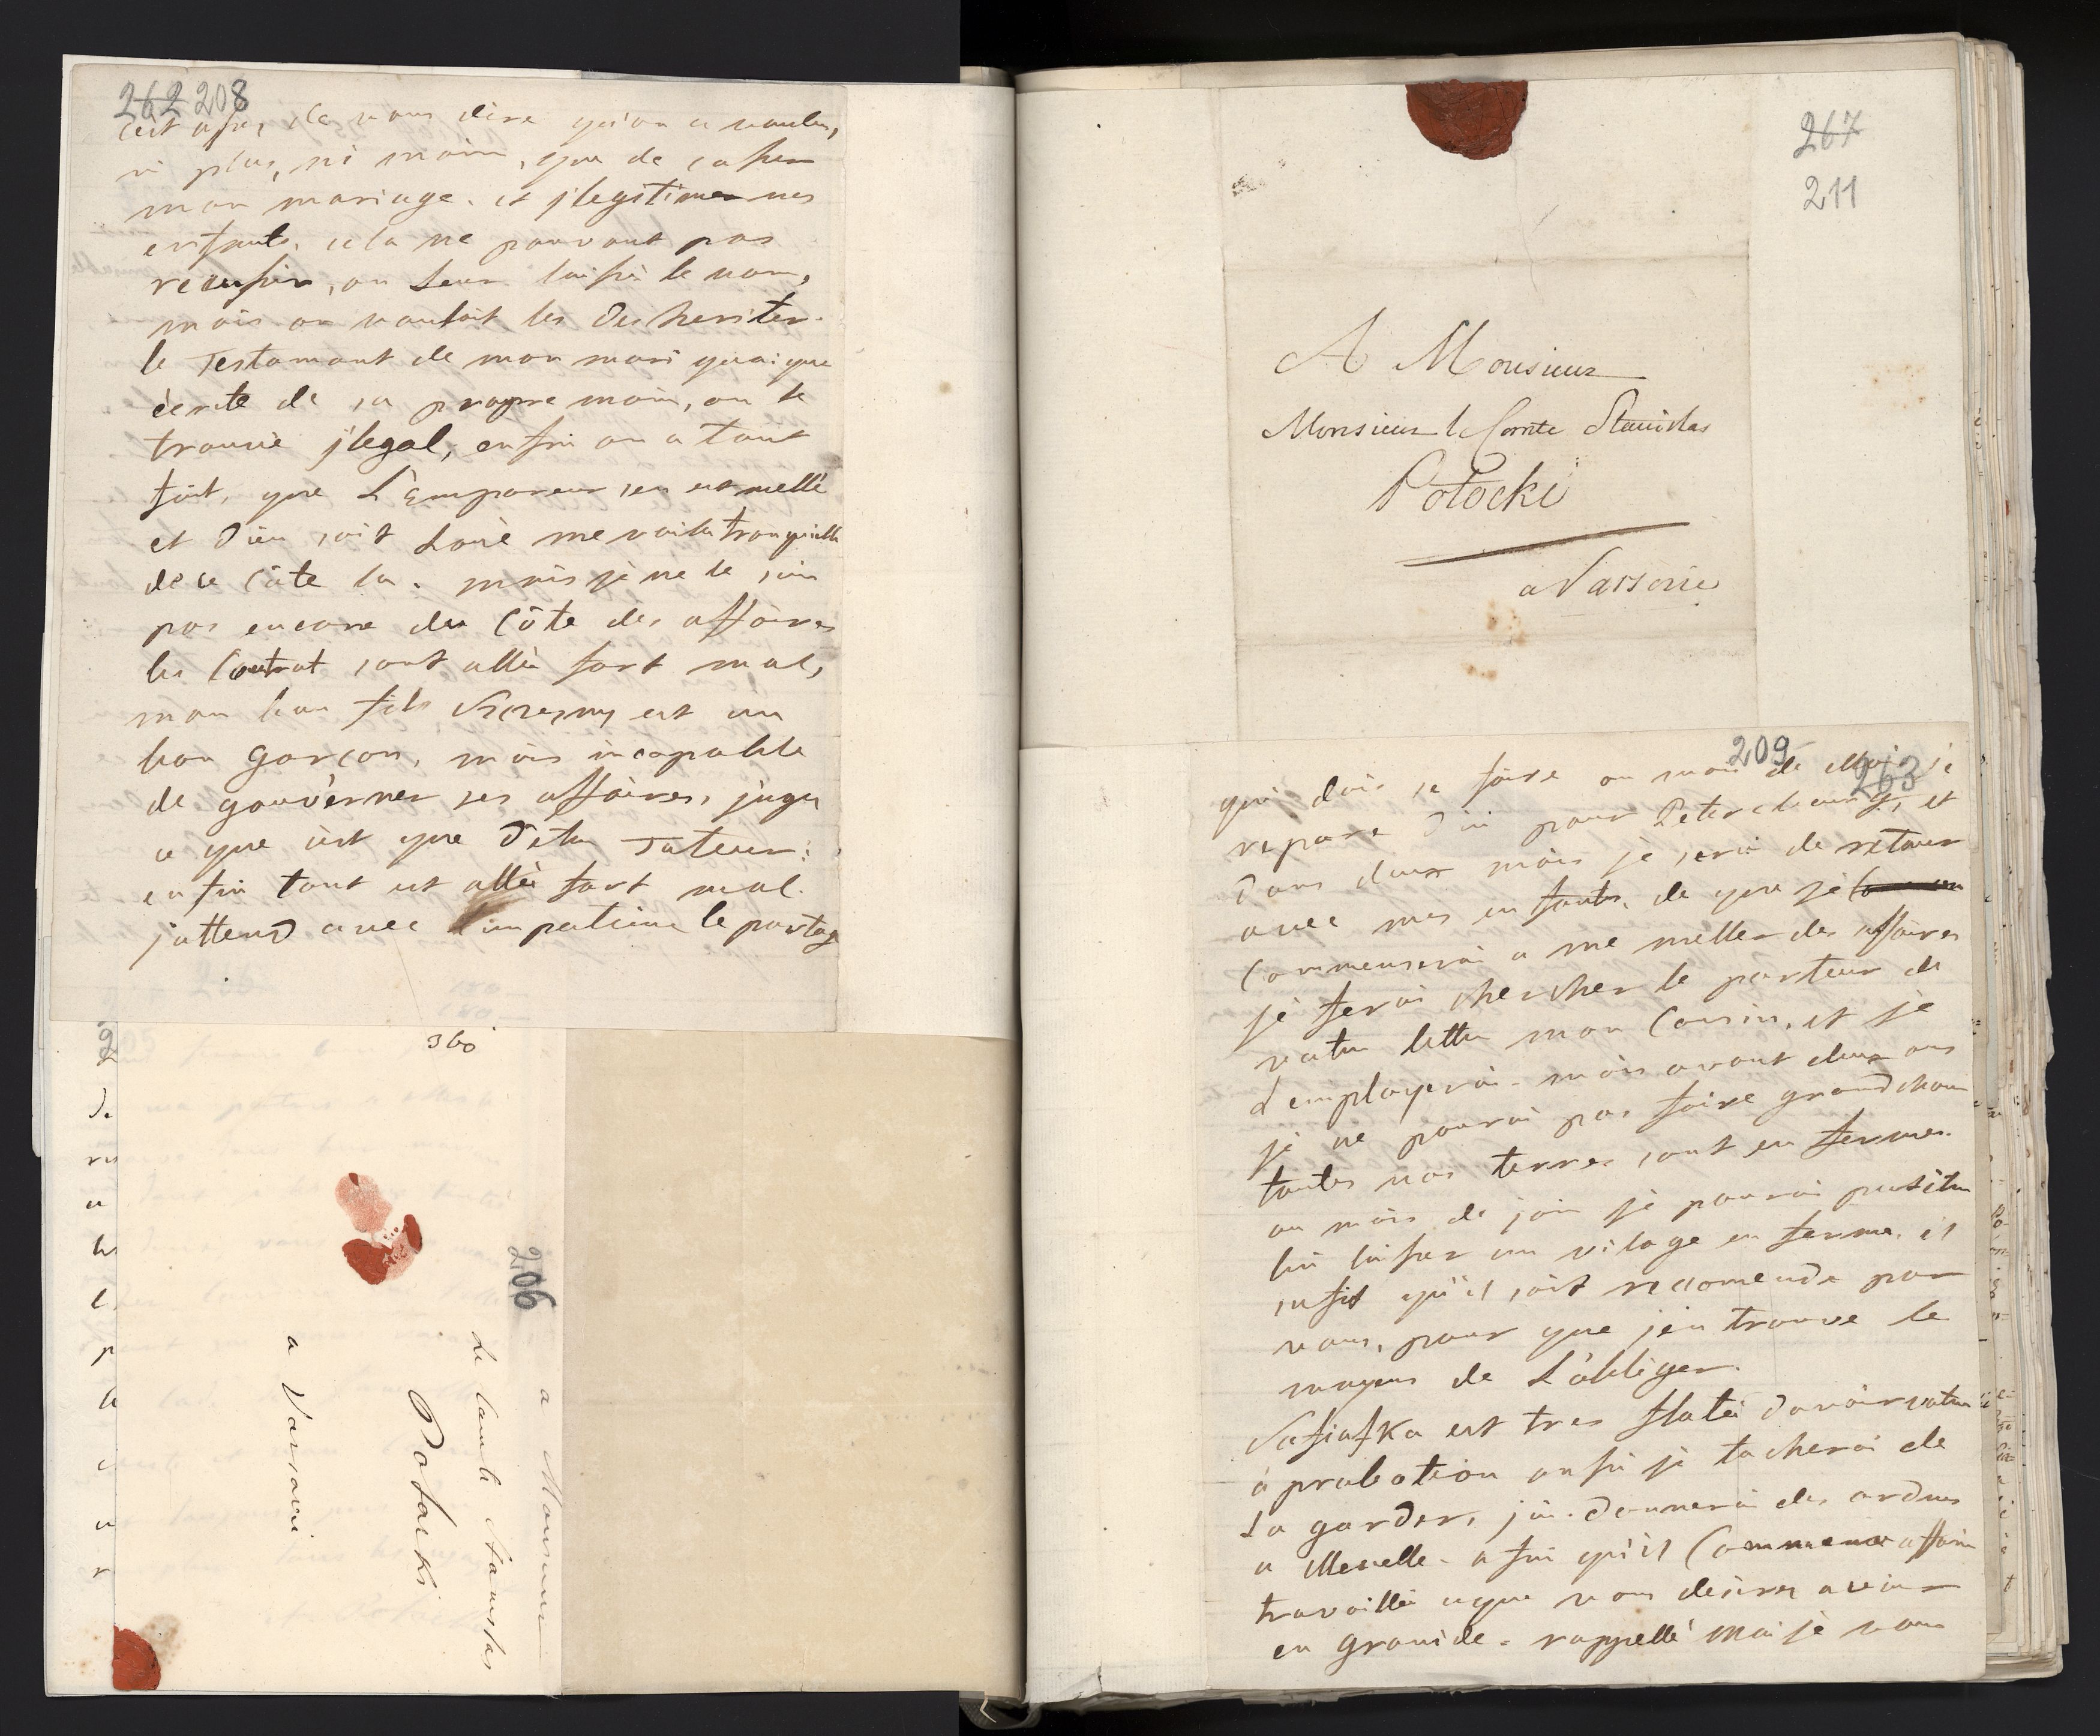 262 208
c'est assez de vous dire qu'on a voulu,
ni plus, ni moin, que de casser
mon mariage. et jlegitimer mes
enfants, cela ne pouvant pas
reeussir, on leur laisse le nom,
mais on vouloit les desheriter.
le Testamant de mon mari quoique
écrite de sa propre main, on le
trouvé jlegal, enfin on a tant
fait, que L'Emporeur s'en est mellé
et Dieu soit Loué me voila tranquille
de ce côte la. mais je ne le suis
pas encore du Côte des affaires
les Contrat sont allée fort mal,
mon bon fils est un
bon garçon, mais incapable
de gouverner ses affaires, jugez
ce que c'est que d'etre Tuteur:
enfin tout est allée fort mal.
jattend avec impatience le partage
360
206
a Monsieur
Le Comte Stanislas
Potocki
a Varsovie
267
211
A Monsieur
Monsieur le Comte Stanislas
Potocki
a Varsovie
209
263
qui dois se faire au mois de Mai. je
repars d'ici pour Petersbourg, et
Dans deux mois je serai de retour
avec mes enfants. de que je
Commenserai a me meller des affaires
je ferai chercher le porteur de
votre lettre mon Cousin, et je
L'employerai - mais avant deux ans
je ne pourai pas faire grand chose
toutes nos terres sont en fermes.
au mois de join je pourai peutetre
lui laisser un vilage en ferme. il
sufit qu'il soit recomende par
vous, pour que j'en trouve le
moyens de L'obliger.
Sofiufka est tres flatée d'avoir votre
aprobation aussi je tacherai de
La garder, j'ai donnerai des ordres
a Metzelle - afin qu'il Commence affaire
travaillée ceque vous desirez avoir
en grande - rappellé moi je vous